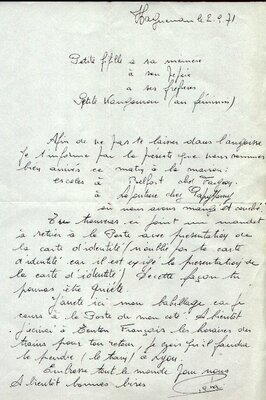 Haguenau le 2.9.71
Petite fille a sa memere
à son Pépère
à ses
Petite Kangourou (au féminin)
Afin de ne pas te laisser dans l'angoisse
Je t'informe par la présente que nous sommes
bien arrivés ce matin à la maison :
escales à Belfort chez
à chez Papy
où nous avons mangé et couché
Tu trouveras ci joint un mandat
à retirer à la Poste avec présentation de
la carte d'identité (n'oublie pas ta carte
d'identité car il est exigé la présentation de
la carte d'identité) De cette façon tu
pourras être quiète.
J'arrête ici mon babillage car je
cours à la Poste de mon coté. A bientot
J'ecrirai à Tonton François les horaires des
trains pour ton retour, je crois qu'il faudra
te prendre (le train) à Lyon.
Embrasse tout le monde pour nous
A bientot bonnes bises